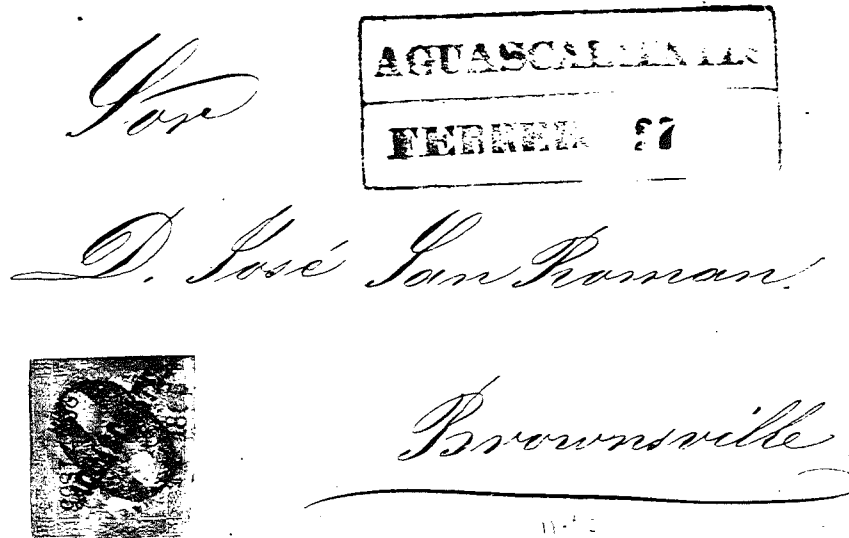 Sor
AGUASCALIENTES
FEBRERO 27
D. José San Roman.
Brownsville